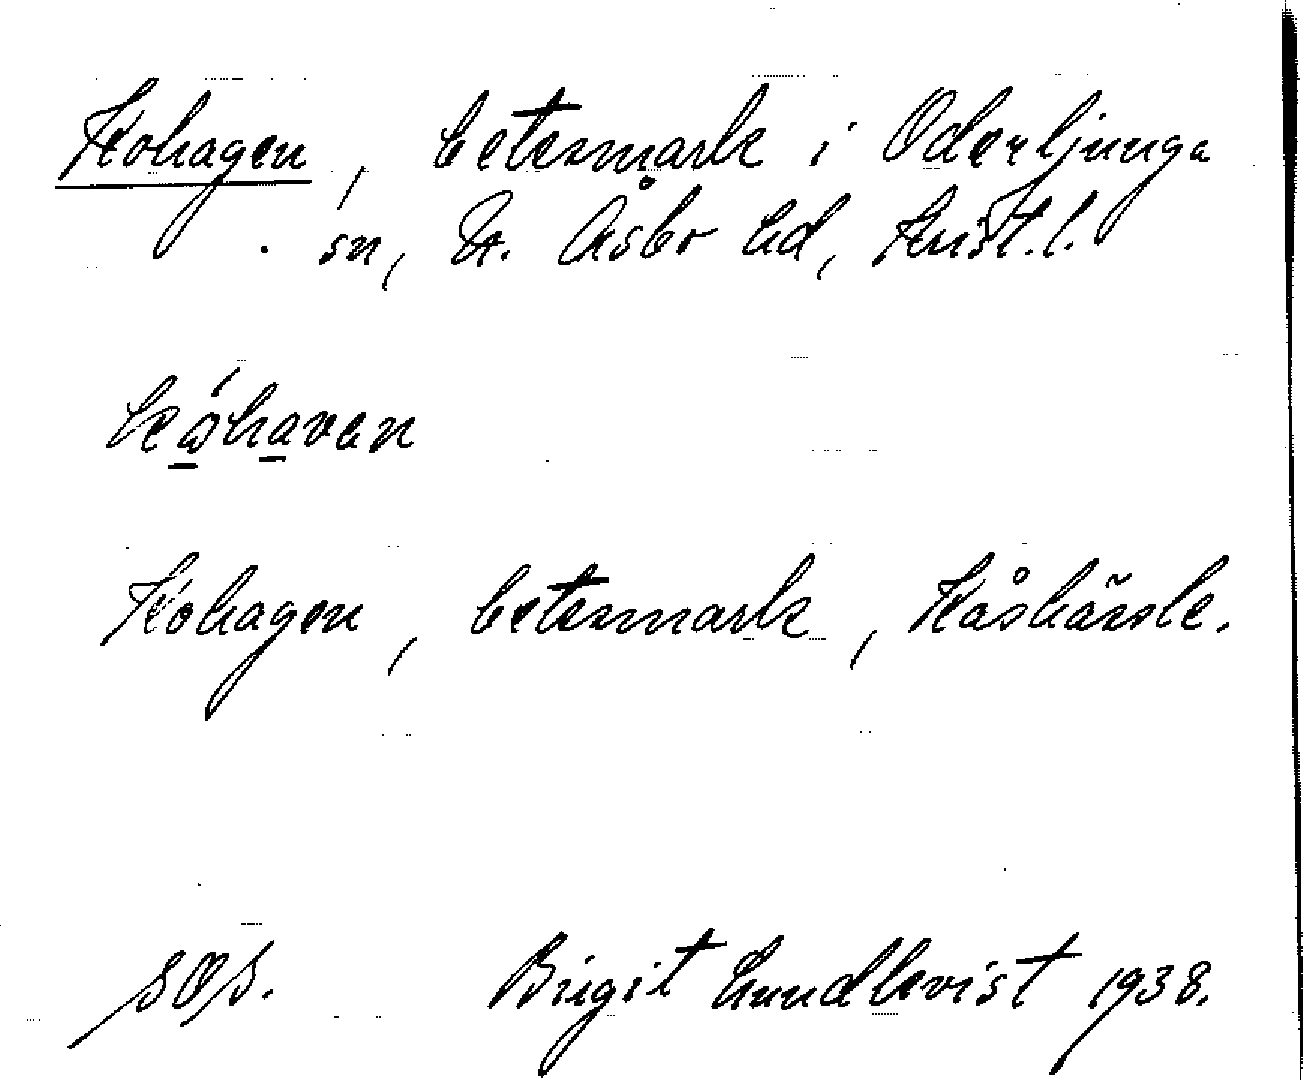 Kohagen, betesmark i Oderljunga
sn, N. Åsbo hd, Krist.l.
kåhavan
Kohagen, betesmark, Kåshässle.
SOS. Birgit Lundkvist 1938.